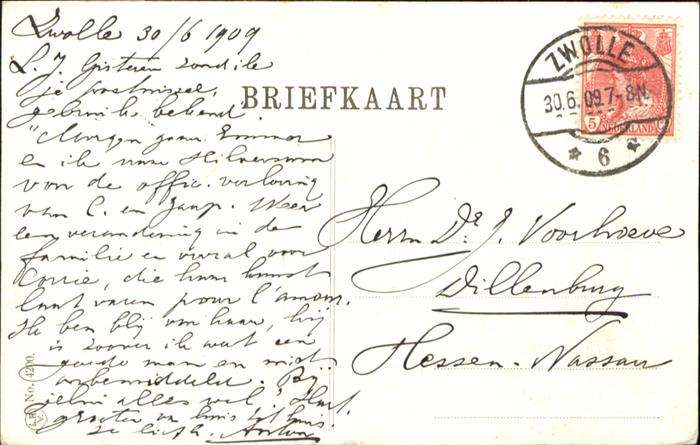 Zwolle 30/6 1909
L. J. Gisteren zond ik
je postwissel,
gebruik bekend.
Morgen gaan Emma
en ik naar Hilversum
voor de offic. verloving
van C. en Jaap. Weer
een verandering in de
familie en vooral voor
Corrie, die haar kunst
laat varen pour l'amour.
Ik ben blij van haar, hij
is zoover ik weet een
goede man en niet
onbemiddeld. Bij
jelui alles wel? Hart.
groeten van huis tot huis
BRIEFKAART
ZWOLLE
30.6.09.7-8N.
6
5 NEDERLAND C
Herrn Dr. J. Voorhoeve
Dillenburg
Hessen-Nassau
No. 4200.